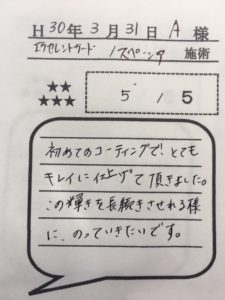 H30年3月31日 A 様
エクセレントガード /スペーシア 施術
★★
★★★
5 / 5
初めてのコーティングで、とても
キレイに仕上げて頂きました。
この輝きを長続きさせれる様
に、のっていきたいです。